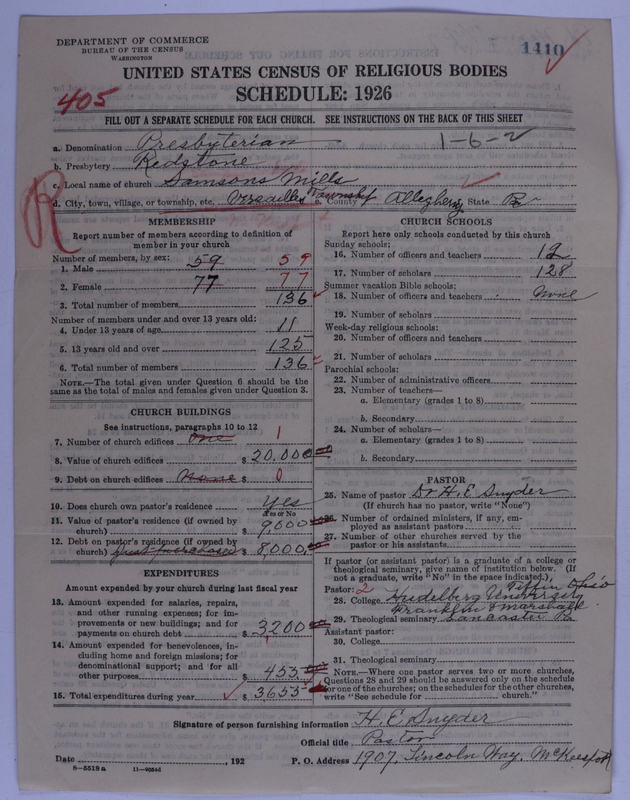 DEPARTMENT OF COMMERCE
BUREAU OF THE CENSUS
WASHINGTON
1410
UNITED STATES CENSUS OF RELIGIOUS BODIES
SCHEDULE: 1926
405
FILL OUT A SEPARATE SCHEDULE FOR EACH CHURCH. SEE INSTRUCTIONS ON THE BACK OF THIS SHEET
a. Denomination Presbyterian 1-6-2
b. Presbytery Redstone
c. Local name of church Samsons Mills
d. City, town, village, or township, etc. Versailles Township e. County Allegheny State Pa
R
MEMBERSHIP
Report number of members according to definition of member in your church
Number of members, by sex:
1. Male 59 59
2. Female 77 77
3. Total number of members 136
Number of members under and over 13 years old:
4. Under 13 years of age 11
5. 13 years old and over 125
6. Total number of members 136
NOTE.—The total given under Question 6 should be the same as the total of males and females given under Question 3.
CHURCH BUILDINGS
See instructions, paragraphs 10 to 12
7. Number of church edifices one 1
8. Value of church edifices $ 20,000
9. Debt on church edifices None $ 0
10. Does church own pastor's residence Yes
Yes or No
11. Value of pastor's residence (if owned by church) $ 9,000
12. Debt on pastor's residence (if owned by church) Just purchased $ 8,000
EXPENDITURES
Amount expended by your church during last fiscal year
13. Amount expended for salaries, repairs, and other running expenses; for improvements or new buildings; and for payments on church debt $ 3200
14. Amount expended for benevolences, including home and foreign missions; for denominational support; and for all other purposes $ 453
15. Total expenditures during year $ 3653
CHURCH SCHOOLS
Report here only schools conducted by this church
Sunday schools:
16. Number of officers and teachers 12
17. Number of scholars 128
Summer vacation Bible schools:
18. Number of officers and teachers None
19. Number of scholars
Week-day religious schools:
20. Number of officers and teachers
21. Number of scholars
Parochial schools:
22. Number of administrative officers
23. Number of teachers—
a. Elementary (grades 1 to 8)
b. Secondary
24. Number of scholars—
a. Elementary (grades 1 to 8)
b. Secondary
PASTOR
25. Name of pastor Dr H. E. Snyder
(If church has no pastor, write "None")
26. Number of ordained ministers, if any, employed as assistant pastors
27. Number of other churches served by the pastor or his assistants
If pastor (or assistant pastor) is a graduate of a college or theological seminary, give name of institution below. (If not a graduate, write "No" in the space indicated.)
Pastor: 2 Tiffin Ohio
28. College Heidelberg University
Franklin & Marshall
29. Theological seminary Lancaster Pa
Assistant pastor:
30. College
31. Theological seminary
NOTE.—Where one pastor serves two or more churches, Questions 28 and 29 should be answered only on the schedule for one of the churches; on the schedules for the other churches, write "See schedule for church."
Signature of person furnishing information H. E. Snyder
Official title Pastor
Date , 192 P. O. Address 1907, Lincoln Way, McKeesport
8—5518 a